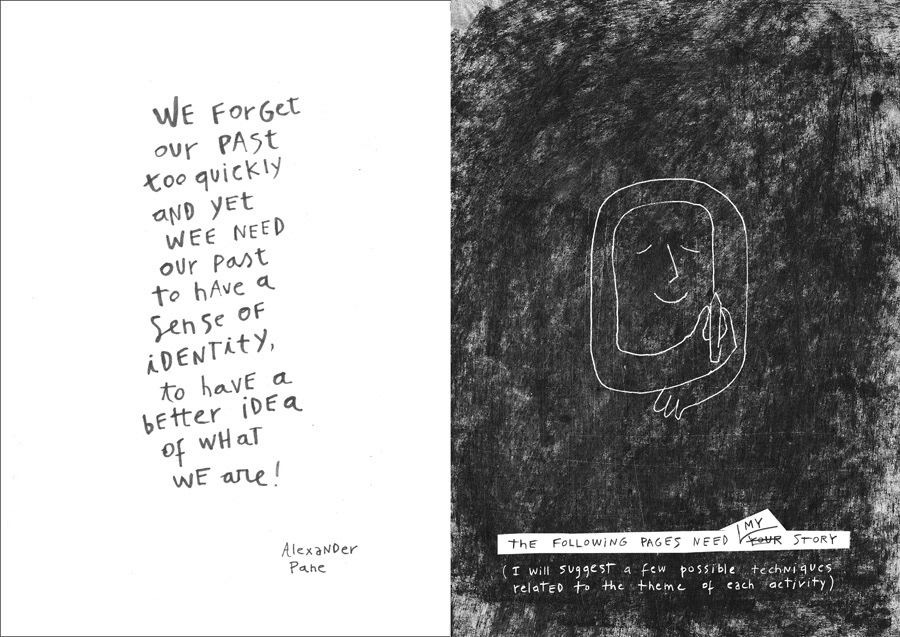 WE ForGet
our PASt
too quickly
AND YEt
WEE NEED
our Past
to hAve a
Sense OF
iDENtity,
to havE a
bEtter iDEa
of WHaT
WE are!
AlexaNDer
Pane
thE FOLLOWING PAGES NEED YOUR STORY
MY
(I will suggest a few possible techniques
relatED to the theme of each activity)